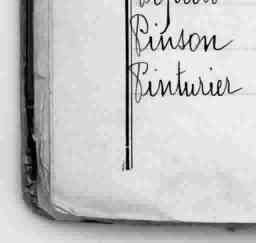 Pinson
Pinturier